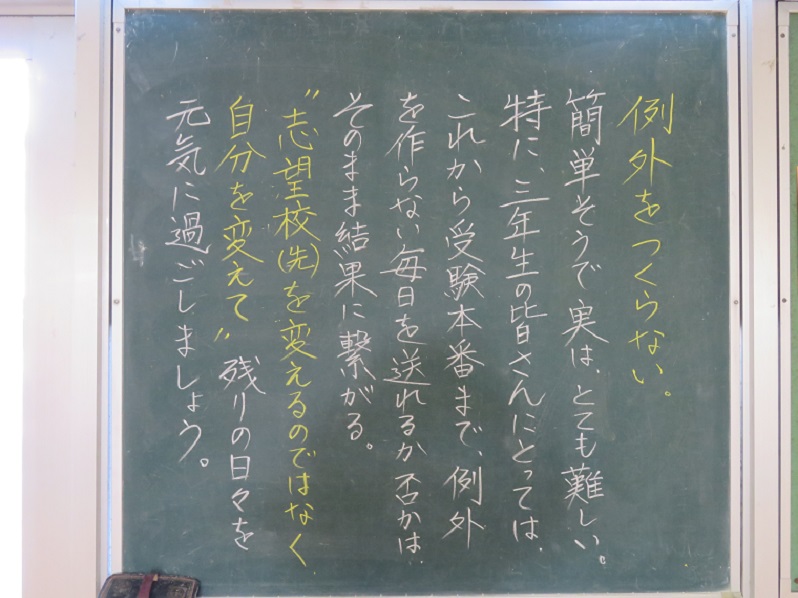 例外をつくらない。
簡単そうで実は、とても難しい。
特に、三年生の皆さんにとっては、
これから受験本番まで、例外
を作らない毎日を送れるか否かは、
そのまま結果に繋がる。
〝志望校(先)を変えるのではなく
自分を変えて〟残りの日々を
元気に過ごしましょう。